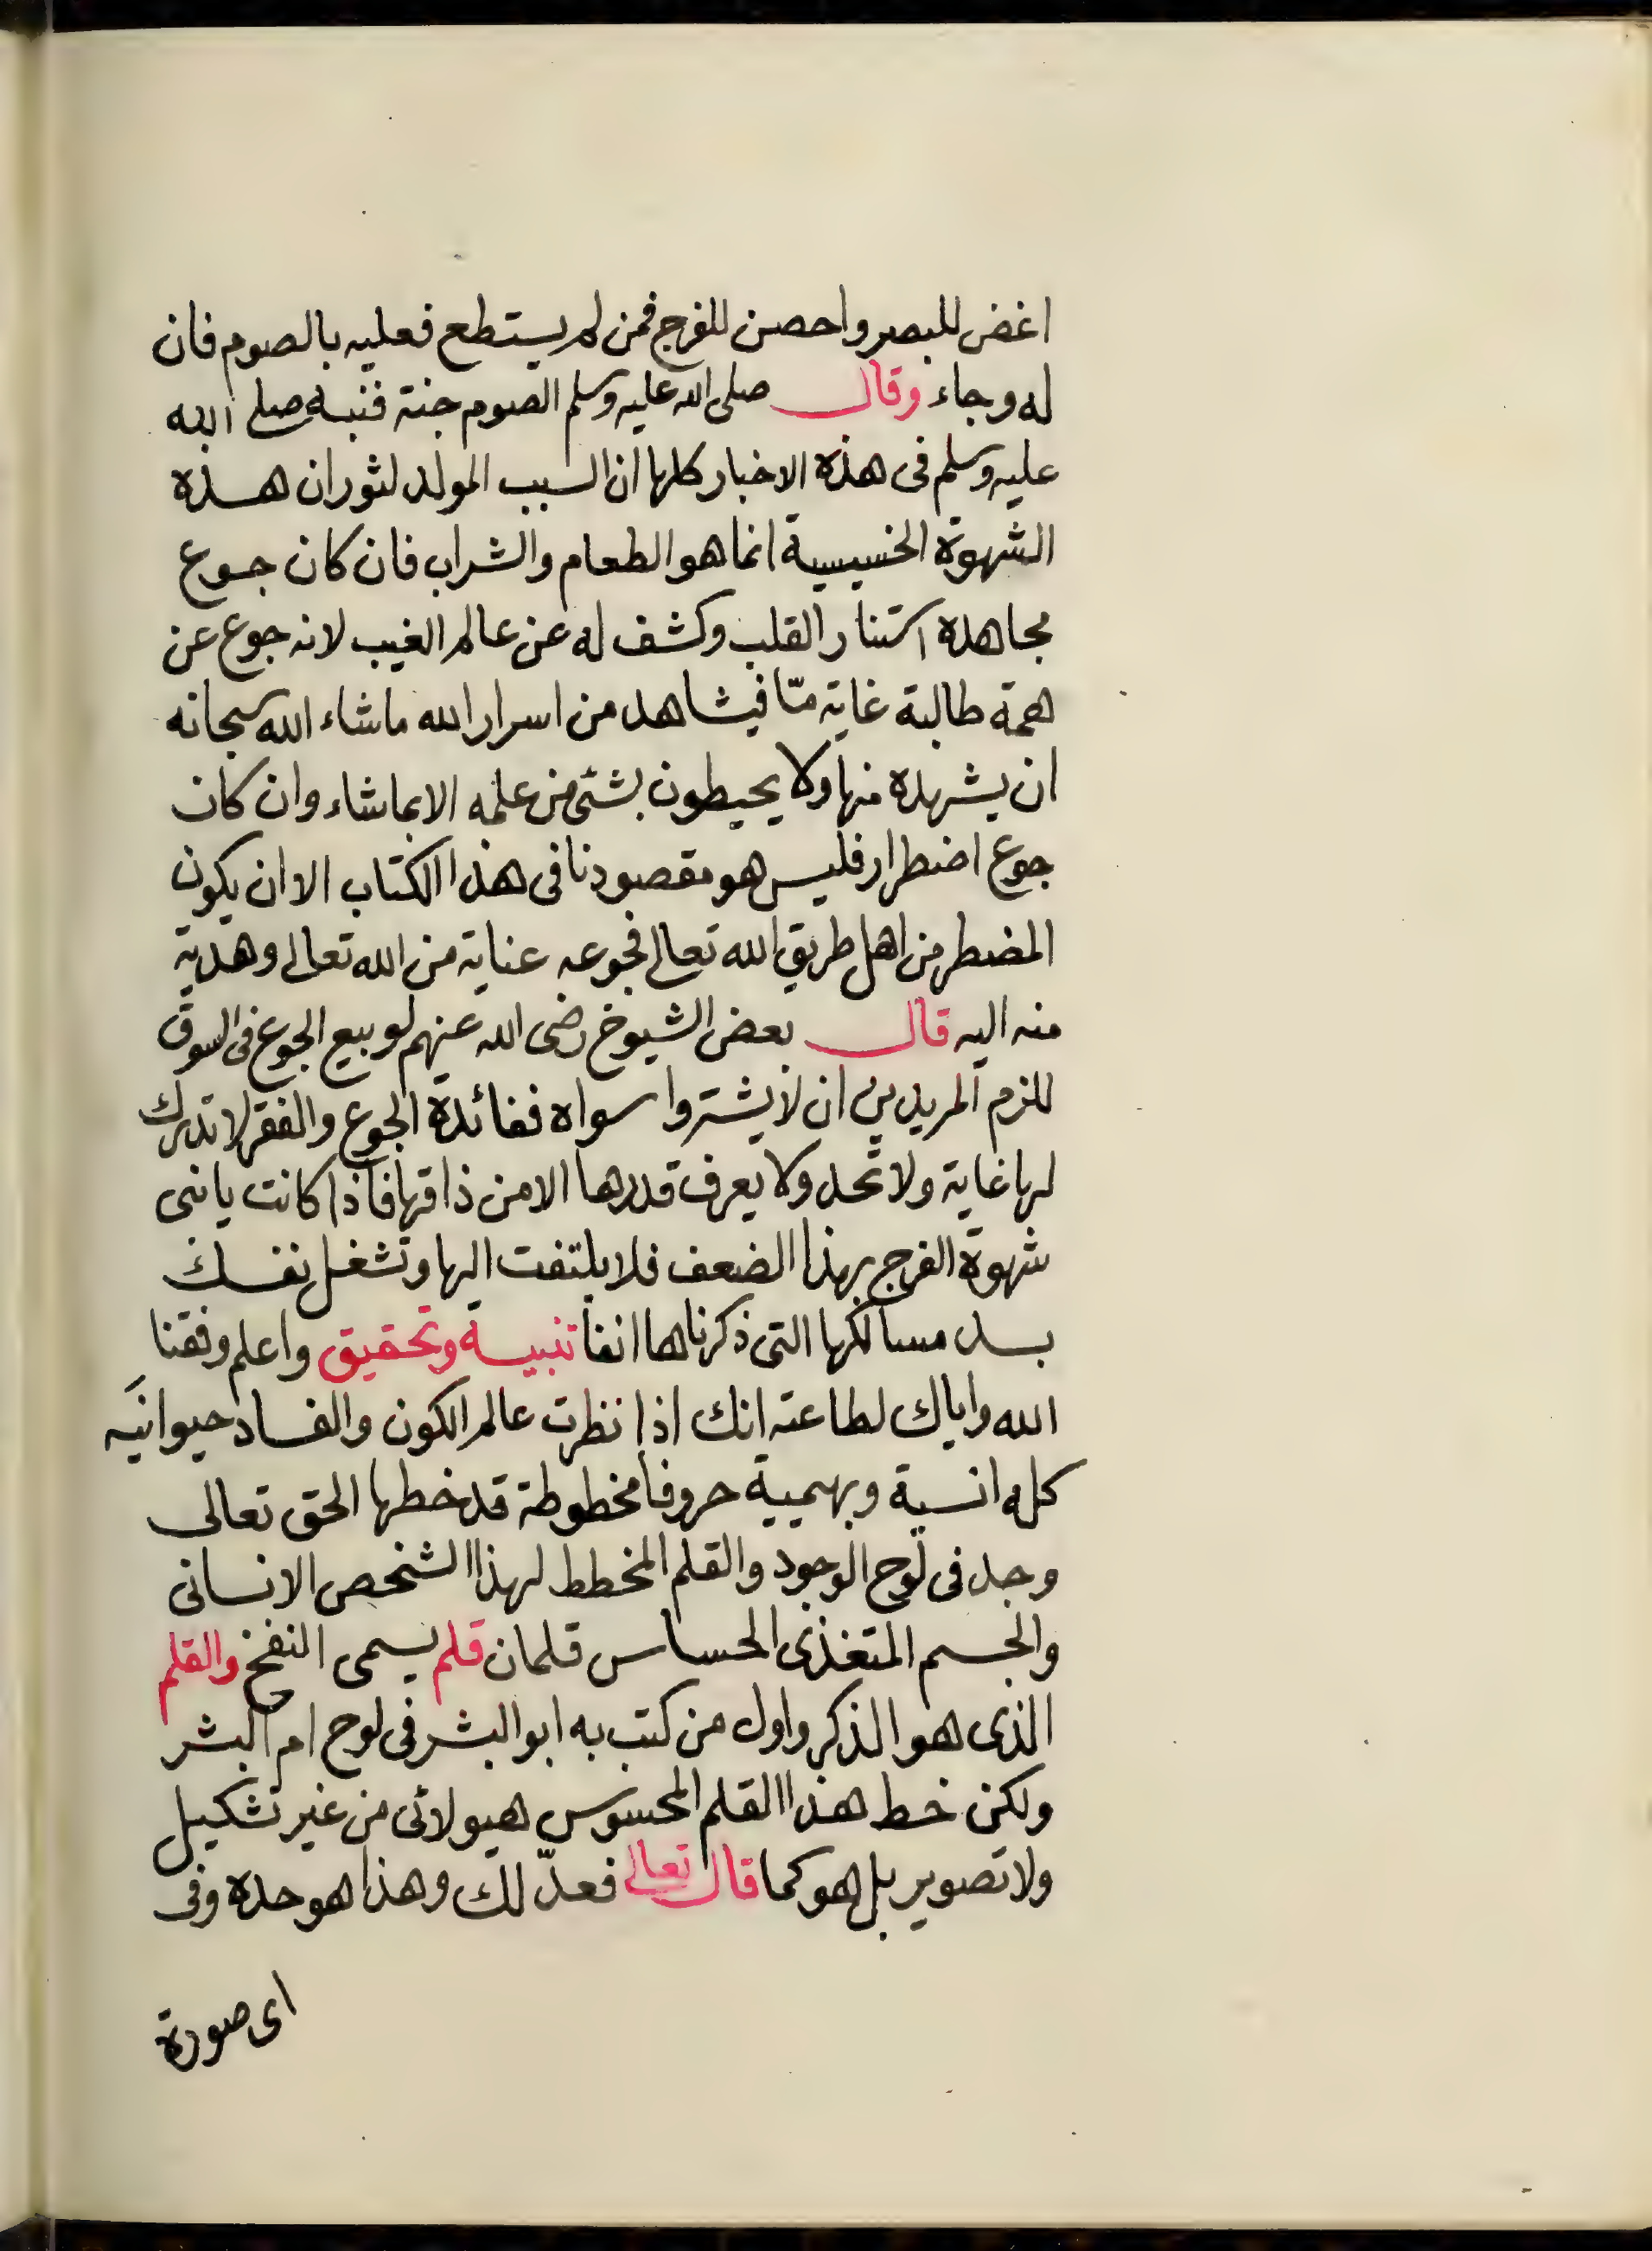 اغض للبصر واحصن للفرج فمن لم يستطع فعليه بالصوم فان
له وجاء وقال صلى الله عليه وسلم الصوم جنة فنبه صلى الله
عليه وسلم فى هذه الاخبار كلها ان السبب المولد لثوران هذه
الشهوة الخسيسية انما هو الطعام والشراب فان كان جوع
مجاهدة استنار القلب وكشف له عن عالم الغيب لانه جوع عن
همة طالبة غاية مّا فيشاهد من اسرار الله ماشاء الله سبحانه
ان يشهده منها ولا يحيطون بشئ من علمه الا بماشاء وان كان
جوع اضطرار فليس هو مقصودنا فى هذا الكتاب الا ان يكون
المضطر من اهل طريق الله تعالى فجوعه عناية من الله تعالى وهدية
منه اليه قال بعض الشيوخ رضى الله عنهم لو بيع الجوع فى السوق
للزم المريدين ان لا يشتروا سواه ففائدة الجوع والفقر لا تدرك
لها غاية ولا تحد ولا يعرف قدرها الا من ذاقها فاذا كانت يابنى
شهوة الفرج بهذا الضعف فلا يلتفت اليها وتشغل نفسك
بسد مسالكها التى ذكرناها انفا تنبيه وتحقيق واعلم وفقنا
الله واياك لطاعته انك اذا نظرت عالم الكون والفساد حيوانيَه
كله انسية وبهيمية حروفا مخطوطة قد خطها الحق تعالى
وجد فى لوح الوجود والقلم المخطط لهذا الشخص الانسانى
والجسم المتغذى الحساس قلمان قلم يسمى النفخ والقلم
الذى هو الذكر واول من كتب به ابو البشر فى لوح ام البشر
ولكن خط هذا القلم المحسوس هيولائى من غير تشكيل
ولا تصوير بل هو كما قال تعالى فعدّلك وهذا هو حده وفى
اى صورة